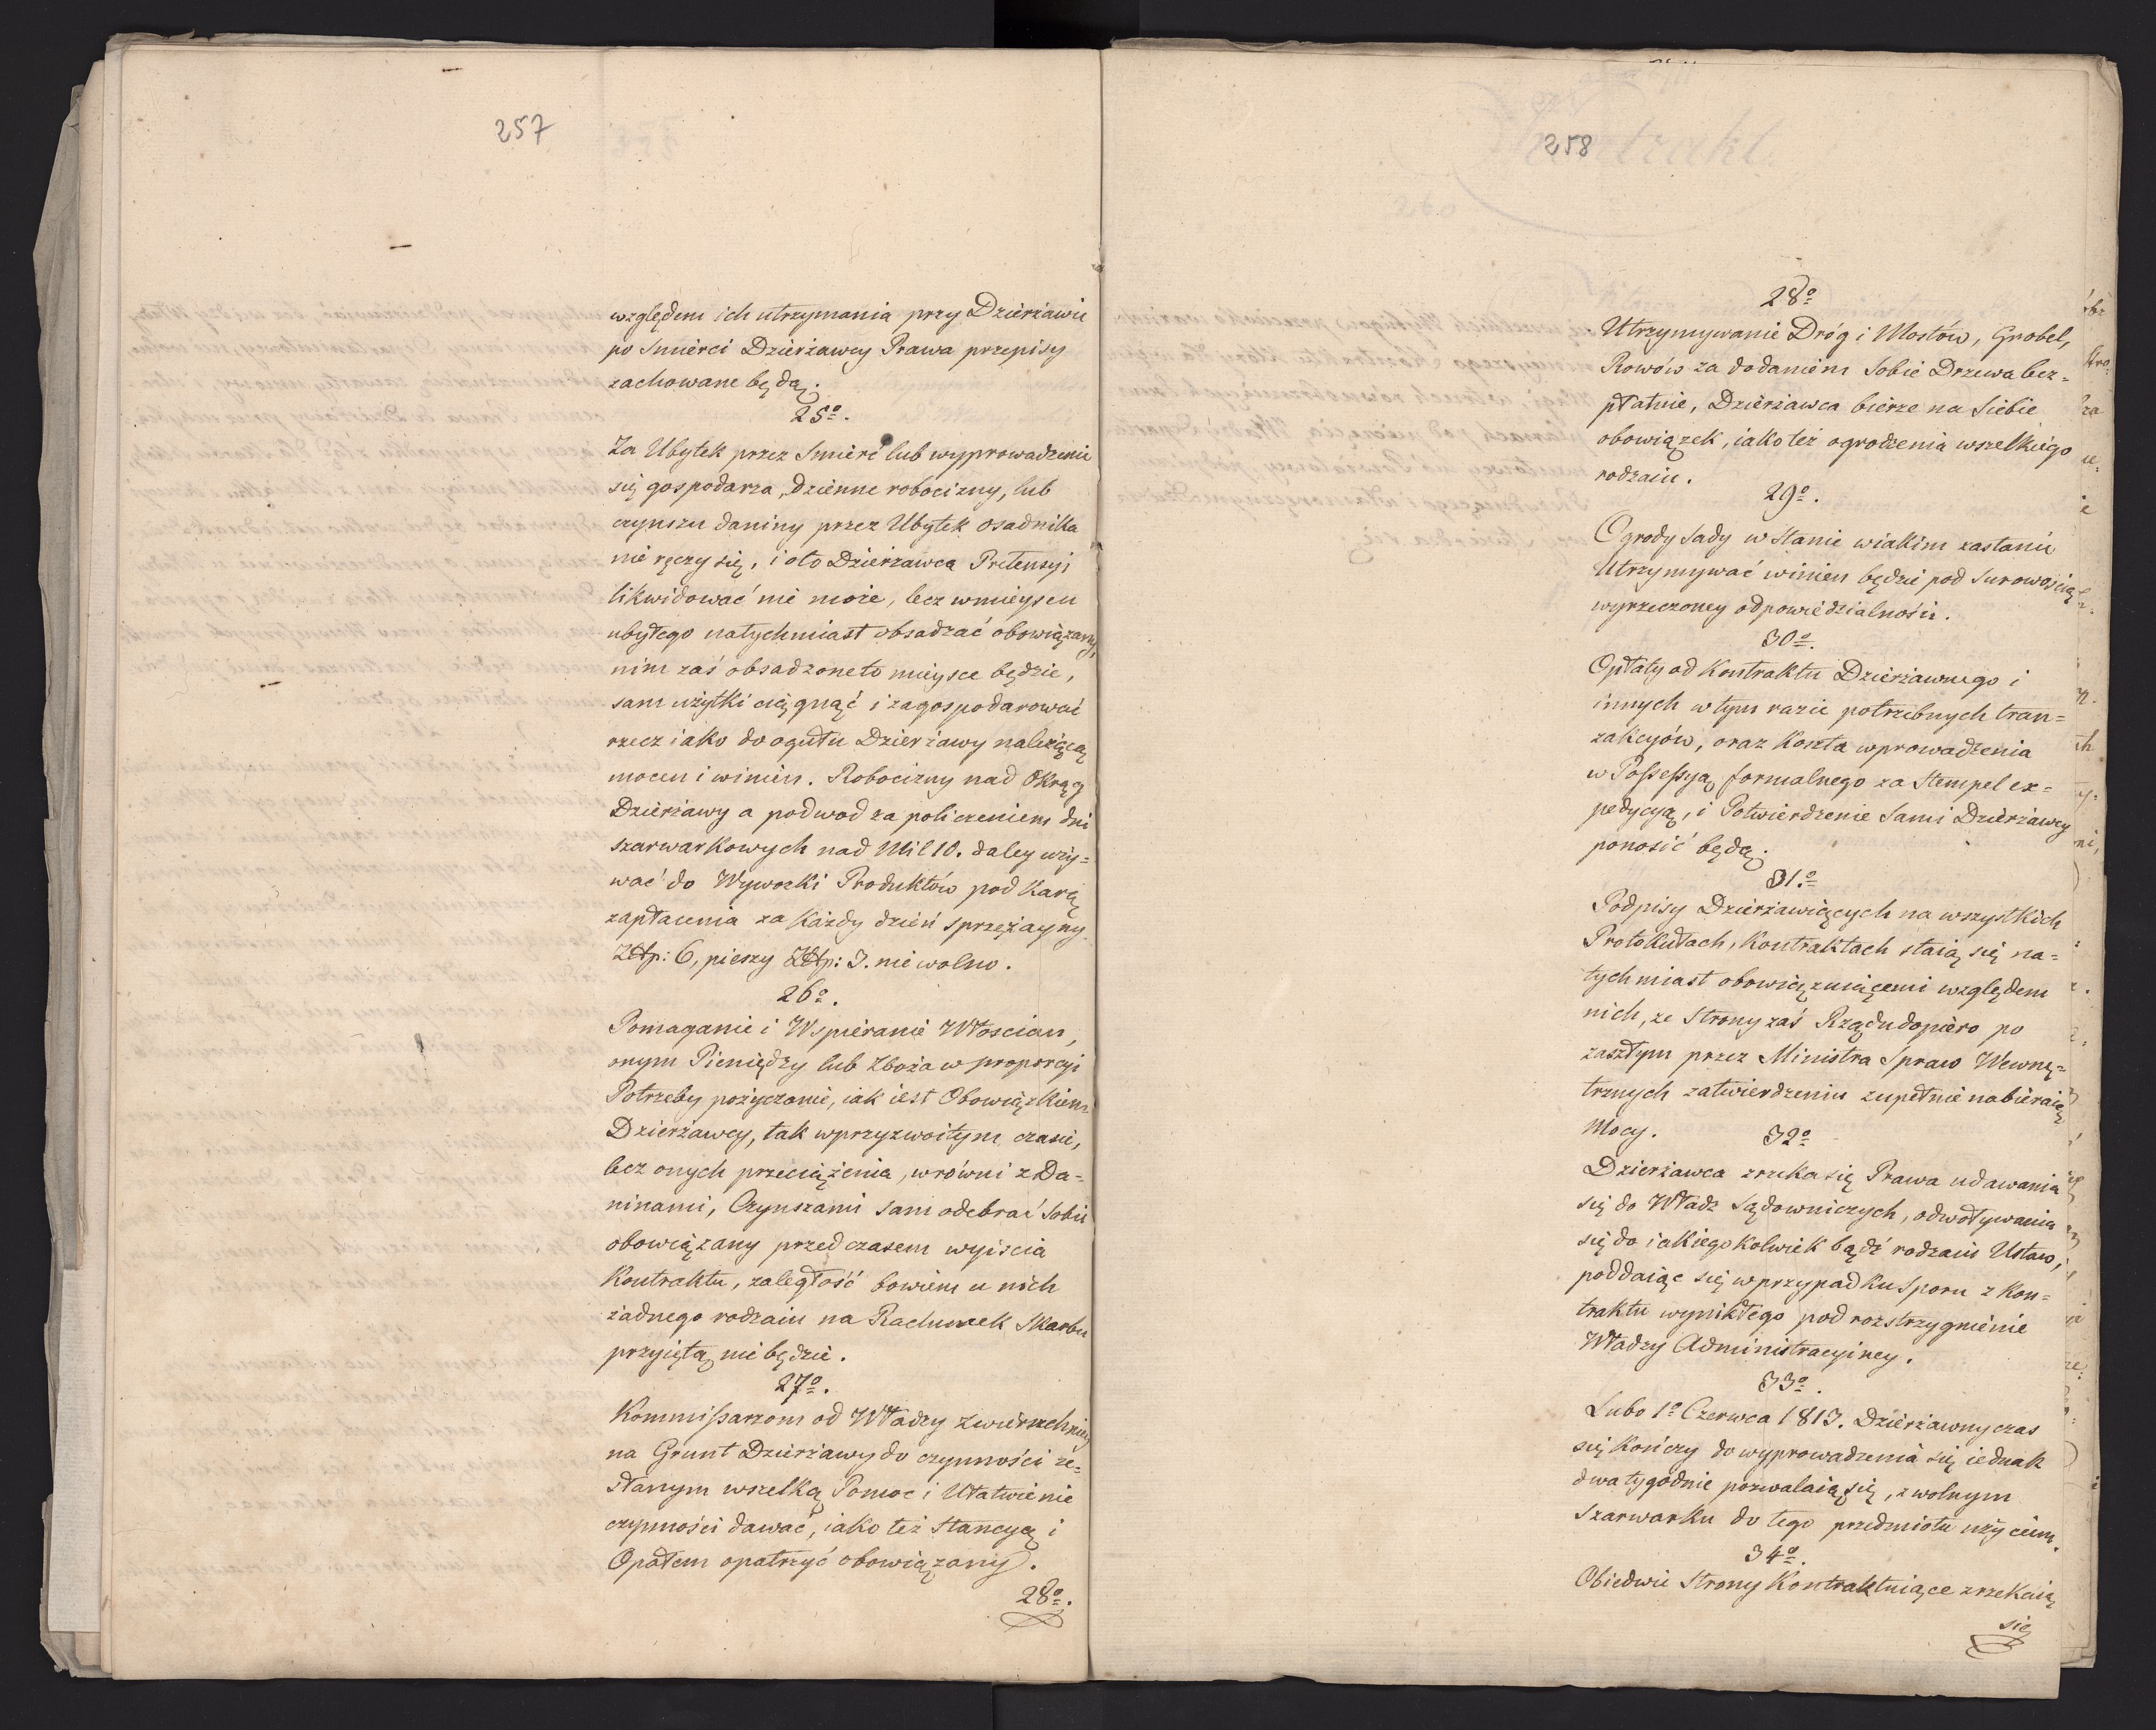 257
względem ich utrzymania przy Dzierżawie
po Smierci Dzierżawcy Prawa przepisy
zachowane będą.
25o.
Za Ubytek przez Smierć lub wyprowadzenie
się gospodarza, dzienne robocizny, lub
czynszu daniny przez Ubytek osadnika
nie ręczy się, i oto Dzierżawca Pretensyi
likwidować nie może, lecz wmieyscu
ubyłego natychmiast obsadzać obowiązany,
nim zaś obsadzone to mieysce będzie,
sam użytki ciągnąć i zagospodarować
rzecz iako do ogułu Dzierżawy należącą
mocen i winien. Robocizny nad Okrąg
Dzierżawy a podwod za policzeniem dni
szarwarkowych nad Mil 10. daley uży=
wać do Wywozki Produktów pod Karą
zapłacenia za Każdy dzień sprzężayny
Złłp: 6, pieszy Złłp: 3. nie wolno.
26o.
Pomaganie i Wspieranie Włoscian,
onym Pieniędzy lub Zboża w proporcyi
Potrzeby pożyczanie, iak iest Obowiązkiem
Dzierżawcy, tak wprzyzwoitym czasie,
bez onych przeciążenia, wrówni z Da=
ninami, Czynszami sam odebrać sobie
obowiązany przed czasem wyiscia
Kontraktu, zaległość bowiem u nich
żadnego rodzaiu na Rachunek Skarbu
przyiętą nie będzie.
27o.
Kommissarzom od Władzy Zwierzchniey
na Grunt Dzierżawy do czynności ze=
słanym wszelką Pomoc i Ułatwienie
czynności dawać, iako też Stancyą i
Opałem opatrzyć obowiązany.
28o.
258
28o
Utrzymywanie Dróg i Mostów, Grobel,
Rowów za dodaniem Sobie Drzewa bez=
płatnie, Dzierżawca bierze na Siebie
obowiązek, iako też ogrodzenia wszelkiego
rodzaiu.
29o.
Ogrody Sady w Stanie wiakim zastanie
Utrzymywać winien będzie pod Surowością
wyrzeczoney odpowiedzialności.
30o.
Opłaty od Kontraktu Dzierżawnego i
innych w tym razie potrzebnych tran=
zakcyów, oraz Koszta wprowadzenia
w Possessyą formalnego za Stempel ex=
pedycyą, i Potwierdzenie Sami Dzierżawcy
ponosić będą.
31.o
Podpisy Dzierżawiących na wszystkich
Protokułach, Kontraktach staią się na=
tychmiast obowiązuiącemi względem
nich, ze Strony zaś Rządu dopiero po
zaszłym przez Ministra Spraw Wewnę=
trznych zatwierdzeniu zupełnie nabieraią
Mocy.
32o
Dzierżawca zrzeka się Prawa udawania
się do Władz Sądowniczych, odwoływania
się do iakiegokolwiek bądź rodzaiu Ustaw,
poddaiąc się w przypadku Sporu z Kon=
traktu wynikłego pod rozstrzygnienie
Władzy Administracyiney.
33o.
Lubo 1o Czerwca 1813. Dzierżawny czas
się Kończy do wyprowadzenia się iednak
dwa tygodnie pozwalaią się, z wolnym
Szarwarku do tego przedmiotu użyciem.
34o.
Obiedwie Strony Kontraktuiące zrzekaią
się